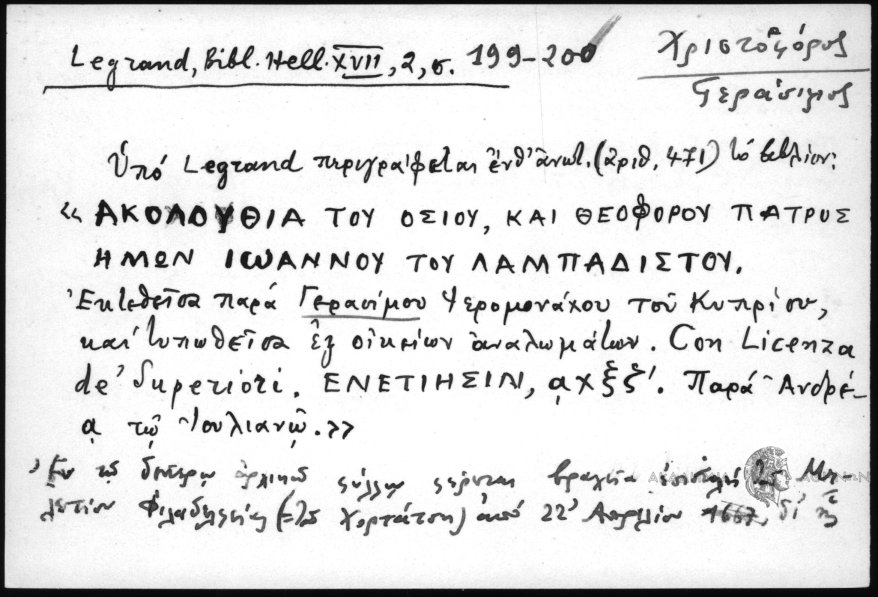 Legrand, Bibl. Hell. XVII, 2, σ. 199-200
Χριστοφόρος
Γεράσιμος
Ὑπό Legrand περιγράφεται ἐνθ' ἀνωτ. (ἀριθ. 471) τό βιβλίον:
« ΑΚΟΛΟΥΘΙΑ ΤΟΥ ΟΣΙΟΥ, ΚΑΙ ΘΕΟΦΟΡΟΥ ΠΑΤΡΟΣ
ΗΜΩΝ ΙΩΑΝΝΟΥ ΤΟΥ ΛΑΜΠΑΔΙΣΤΟΥ.
Ἐκτεθεῖσα παρά Γερασίμου Ἱερομονάχου τοῦ Κυπρίου,
καί τυπωθεῖσα ἐξ οἰκείων ἀναλωμάτων. Con Licenza
de' Superiori. ΕΝΕΤΙΗΣΙΝ, αχξζ'. Παρά Ἀνδρέ-
ᾳ τῷ Ἰουλιανῷ.»
Ἐν τῷ δευτέρῳ φύλλῳ φέρεται βραχεῖα ἐπιστολή τοῦ Με-
λετίου Φιλαδελφείας (=τοῦ Χορτάτση) ἀπό 22 Ἀπριλίου 1667, δι'